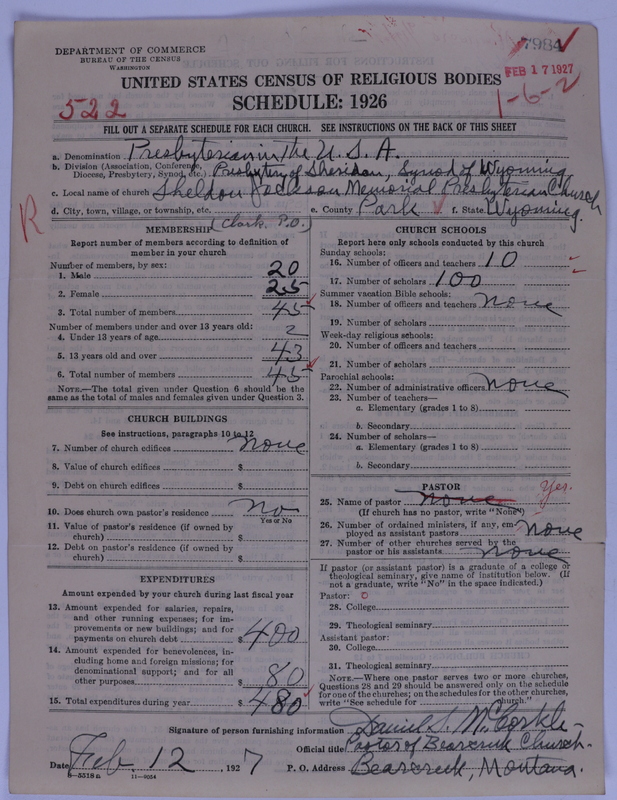 DEPARTMENT OF COMMERCE
BUREAU OF THE CENSUS
WASHINGTON
7984
FEB 17 1927
1-6-2
522
UNITED STATES CENSUS OF RELIGIOUS BODIES
SCHEDULE: 1926
FILL OUT A SEPARATE SCHEDULE FOR EACH CHURCH. SEE INSTRUCTIONS ON THE BACK OF THIS SHEET
a. Denomination Presbyterian in the U.S.A.
b. Division (Association, Conference, Diocese, Presbytery, Synod, etc.) Presbytery of Sheridan, Synod of Wyoming
c. Local name of church Sheldon Jackson Memorial Presbyterian Church
d. City, town, village, or township, etc. (Clark, P.O.) e. County Park f. State Wyoming.
R
MEMBERSHIP
Report number of members according to definition of
member in your church
Number of members, by sex:
1. Male 20
2. Female 25
3. Total number of members 45
Number of members under and over 13 years old:
4. Under 13 years of age 2
5. 13 years old and over 43
6. Total number of members 45
NOTE.—The total given under Question 6 should be the
same as the total of males and females given under Question 3.
CHURCH BUILDINGS
See instructions, paragraphs 10 to 12
7. Number of church edifices none
8. Value of church edifices $
9. Debt on church edifices $
10. Does church own pastor's residence no
Yes or No
11. Value of pastor's residence (if owned by
church) $
12. Debt on pastor's residence (if owned by
church) $
EXPENDITURES
Amount expended by your church during last fiscal year
13. Amount expended for salaries, repairs,
and other running expenses; for im-
provements or new buildings; and for
payments on church debt $ 400
14. Amount expended for benevolences, in-
cluding home and foreign missions; for
denominational support; and for all
other purposes $ 80
15. Total expenditures during year $ 480
CHURCH SCHOOLS
Report here only schools conducted by this church
Sunday schools:
16. Number of officers and teachers 10
17. Number of scholars 100
Summer vacation Bible schools:
18. Number of officers and teachers none
19. Number of scholars
Week-day religious schools:
20. Number of officers and teachers
21. Number of scholars
Parochial schools:
22. Number of administrative officers none
23. Number of teachers—
a. Elementary (grades 1 to 8)
b. Secondary
24. Number of scholars—
a. Elementary (grades 1 to 8)
b. Secondary
PASTOR
Yes.
25. Name of pastor none
(If church has no pastor, write "None")
26. Number of ordained ministers, if any, em-
ployed as assistant pastors none
27. Number of other churches served by the
pastor or his assistants none
If pastor (or assistant pastor) is a graduate of a college or
theological seminary, give name of institution below. (If
not a graduate, write "No" in the space indicated.)
Pastor: o
28. College
29. Theological seminary
Assistant pastor:
30. College
31. Theological seminary
NOTE.—Where one pastor serves two or more churches,
Questions 28 and 29 should be answered only on the schedule
for one of the churches; on the schedules for the other churches,
write "See schedule for church."
Signature of person furnishing information Daniel S. McCorkle
Official title Pastor of Bearcreek Church.
Date Feb 12, 1927 P. O. Address Bearcreek, Montana.
8-5318 a 11-9054